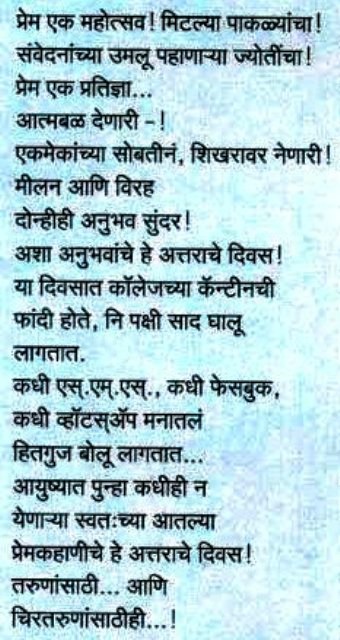 प्रेम एक महोत्सव! मिटल्या पाकळ्यांचा!
संवेदनांच्या उमलू पहाणाऱ्या ज्योतींचा!
प्रेम एक प्रतिज्ञा...
आत्मबळ देणारी -!
एकमेकांच्या सोबतीनं, शिखरावर नेणारी!
मीलन आणि विरह
दोन्हीही अनुभव सुंदर!
अशा अनुभवांचे हे अत्तराचे दिवस!
या दिवसात कॉलेजच्या कॅन्टीनची
फांदी होते, नि पक्षी साद घालू
लागतात.
कधी एस्.एम्.एस्., कधी फेसबुक,
कधी व्हॉटस्ॲप मनातलं
हितगुज बोलू लागतात...
आयुष्यात पुन्हा कधीही न
येणाऱ्या स्वतःच्या आतल्या
प्रेमकहाणीचे हे अत्तराचे दिवस!
तरुणांसाठी... आणि
चिरतरुणांसाठीही...!